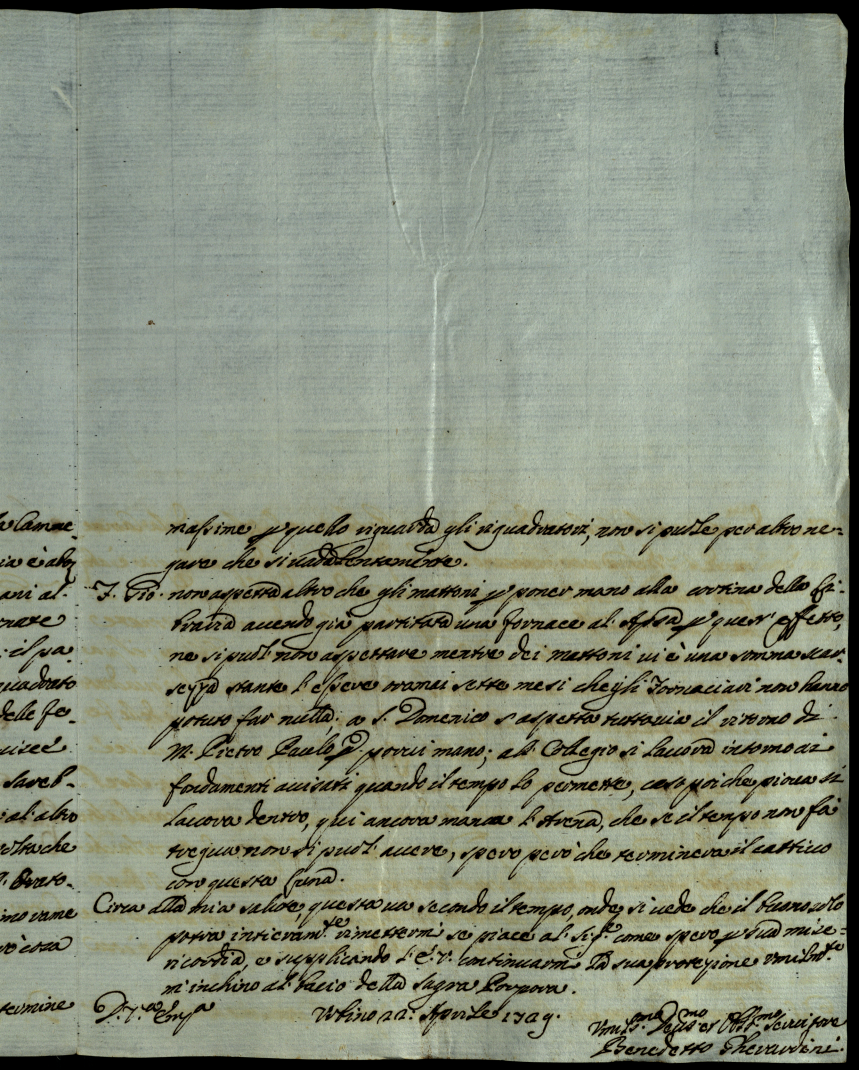 la Camme-
ia è alq
ani al-
rnate
: il pa-
quadrato
delle fe-
Sareb-
al altro
olta che
Orato-
ino rame
vò cosa
termine
massime p quello riguarda gli riquadratori, non si puole per altro ne=
gare che si vada lentamente.
non aspetta altro che gli mattoni p poner mano alla cortina della
avendo già partitato una fornace al p quest' effetto,
ne si puol' non aspettare mentre dei mattoni vi è una somma scar-
sezza stante l'essere oramai sette mesi che gli Fornaciari non hanno
potuto far nulla: a S. Domenico s'aspetta tuttavia il ritorno di
M. Pietro Paulo p. porvi mano; al Collegio si lavora intorno ai
fondamenti avisati quando il tempo lo permette, caso poi che piova si
lavora dentro, qui ancora manca l'Arena, che se il tempo non fà
tregua non si puol' avere, spero però che terminerà il cattivo
con questa Luna.
Circa alla mia salute, questa va secondo il tempo, onde si vede che il buono solo
potrà intieram.te rimettermi se piace al Sig.re come spero p sua mise-
ricordia, e supplicando l'E. V. continuarmi la sua protezione umilm.te
m'inchino al bacio della Sagra Porpora.
D. V.ra Em.za Urbino 22: Aprile 1729.
Umil.mo Dev.mo et Obb.mo Servitore
Benedetto Gherardini.